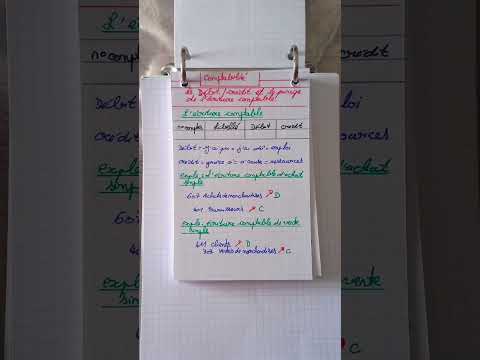 Comptabilité
Le Débit / crédit et le principe
de l'écriture comptable:
L'écriture comptable
n°compte Libellé Débit crédit
Débit = = emploi
crédit = = ressources
Exple: L'écriture comptable d'achat
simple
607 Achats de marchandises → D
401 Fournisseurs → C
Exple: écriture comptable de vente
simple
411 clients → D
707 ventes de marchandises → C